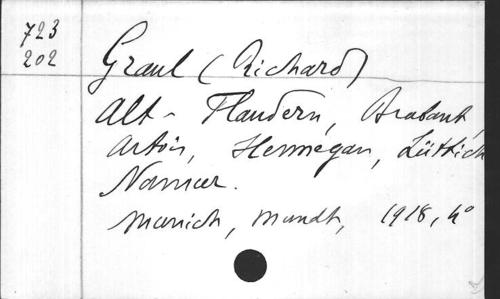 723
202
Graul (Richard)
Alt-Flandern, Brabant,
Artois, Hennegau, Lüttich
Namur.
Munich, Mundt, 1918, 4°